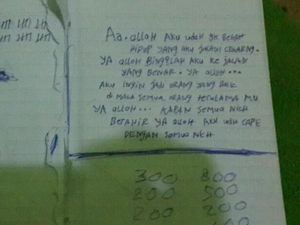 Aa. alloh aku udah gk betah
hidup yang aku jalani sekarang.
ya alloh bingblah aku ke jalan
yang benar. ya alloh...
aku ingin jadi orang yang baik
di mata semua orang terutama mu
ya alloh... kapan semua neh
berahir ya alloh aku udh cape
dengan semua neh
300 800
200 500
200 200